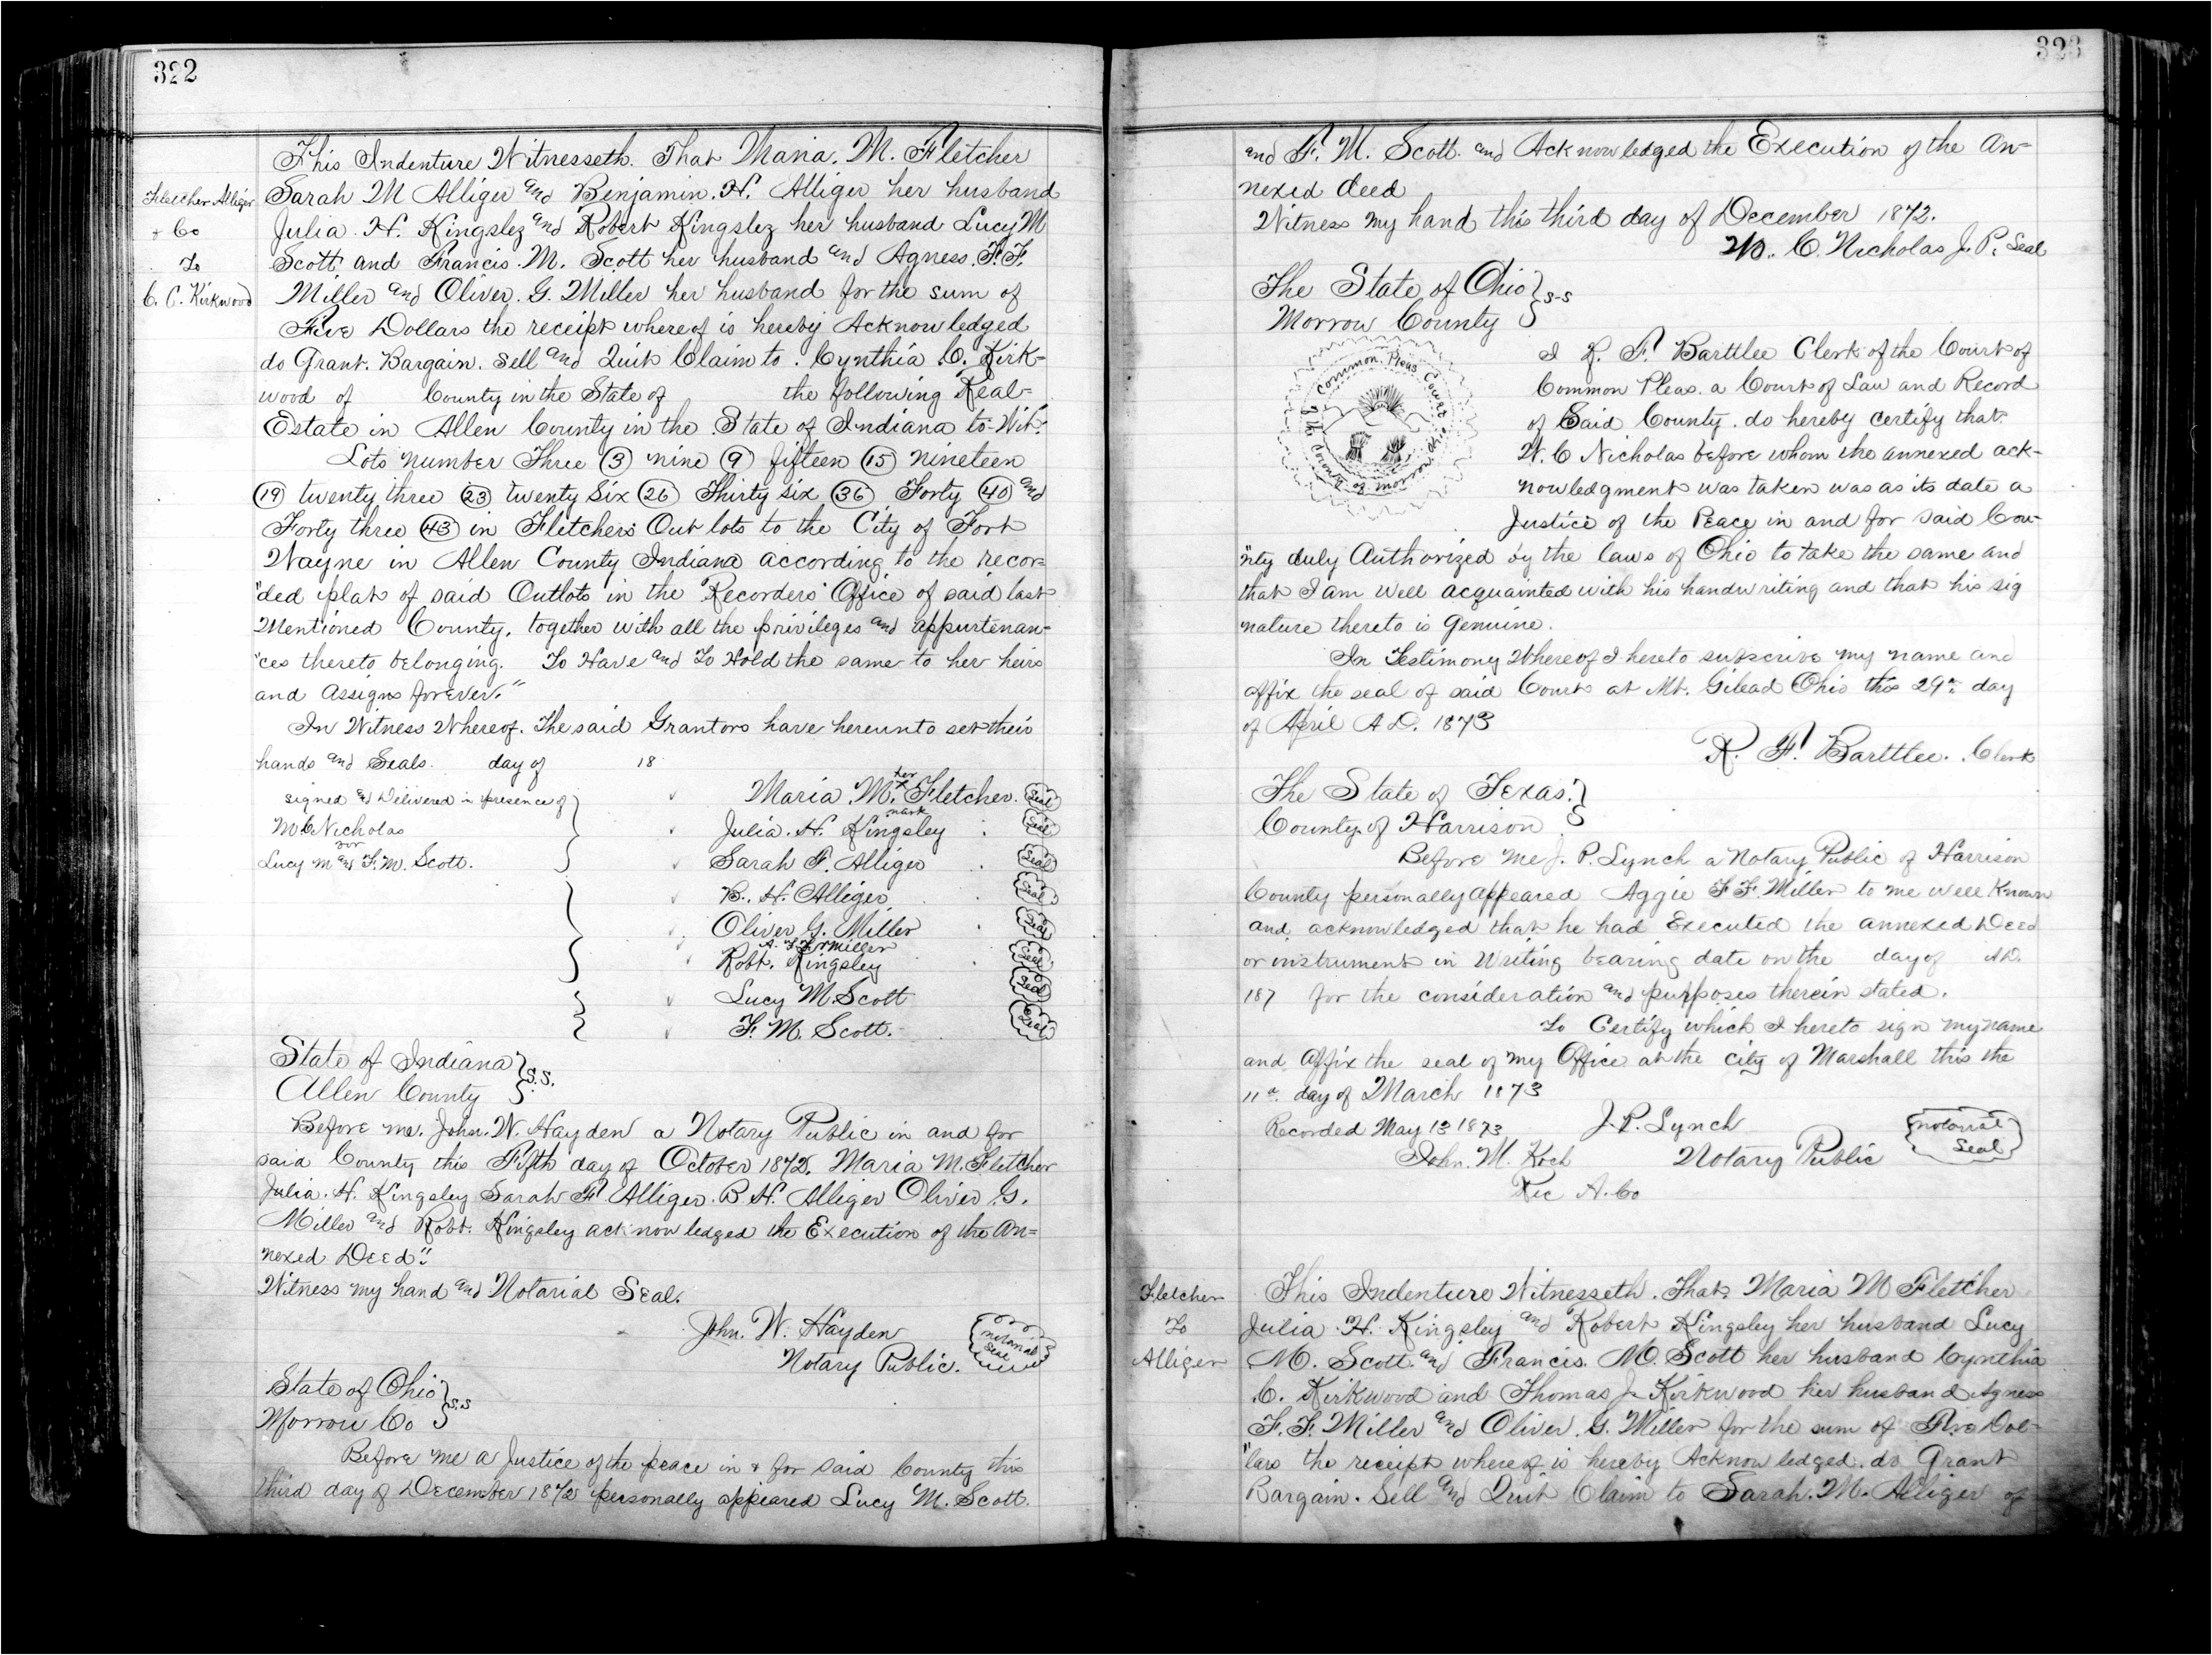 322
This Indenture Witnesseth. That Maria. M. Fletcher
Fletcher Alliger
Sarah M Alliger and Benjamin. H. Alliger her husband
+ Co
Julia. H. Kingsley and Robert Kingsley her husband Lucy M
To
Scott and Francis. M. Scott her husband and Agness. F. F.
C. C. Kirkwood
Miller and Oliver. G. Miller her husband for the sum of
Five Dollars the receipt whereof is hereby Acknowledged
do Grant. Bargain. Sell and Quit Claim to. Cynthia C. Kirk=
wood of County in the State of the following Real-
Estate in Allen County in the State of Indiana to-Wit:
Lots number Three (3) nine (9) fifteen (15) nineteen
(19) twenty three (23) twenty Six (26) Thirty six (36) Forty (40) and
Forty three (43) in Fletchers Out lots to the City of Fort
Wayne in Allen County Indiana according to the recor=
"ded plat of said Outlots in the Recorders Office of said last
Mentioned County. together with all the privileges and appurtenan-
"ces thereto belonging. To Have and To Hold the same to her heirs
and Assigns forever."
In Witness Whereof. The said Grantors have hereunto set their
hands and Seals. day of 18
signed and Delivered in presence of
W C Nicholas
for
Lucy M and F. M. Scott.
Maria. M. her x mark Fletcher. Seal
Julia. H. Kingsley Seal
Sarah F. Alliger Seal
B. H. Alliger Seal
Oliver G. Miller Seal
A. F. F. Miller
Robt. Kingsley Seal
Lucy M Scott Seal
F. M. Scott. Seal
State of Indiana } S.S.
Allen County
Before me. John. W. Hayden a Notary Public in and for
said County this Fifth day of October 1872. Maria M. Fletcher
Julia. H. Kingsley Sarah F Alliger. B. H. Alliger Oliver. G.
Miller and Robt. Kingsley acknowledged the Execution of the An=
nexed Deed"
Witness my hand and Notarial Seal.
John. W. Hayden
Notary Public.
Notarial Seal
State of Ohio } S.S
Morrow Co
Before me a Justice of the peace in & for said County this
third day of December 1872 personally appeared Lucy M. Scott.
323
and F. M. Scott. and Acknowledged the Execution of the An-
nexed deed
Witness my hand this third day of December 1872.
W. C. Nicholas J. P. Seal
The State of Ohio } S-S
Morrow County
Common Pleas Court of the County of Morrow Ohio
I R. F. Barttlee Clerk of the Court of
Common Pleas. a Court of Law and Record
of Said County. do hereby certify that.
W. C Nicholas before whom the annexed ack-
nowledgment was taken was as its date a
Justice of the Peace in and for said Cou-
"nty duly Authorized by the laws of Ohio to take the same and
that I am well acquainted with his handwriting and that his sig
nature thereto is Genuine.
In Testimony Whereof I hereto subscribe my name and
affix the seal of said Court at Mt. Gilead Ohio this 29th day
of April A D. 1873
R. F. Barttlee. Clerk
The State of Texas. }
County of Harrison
Before me J. P. Lynch a Notary Public of Harrison
County personally appeared Aggie F F. Miller to me well Known
and acknowledged that he had Executed the annexed Deed
or instrument in Writing bearing date on the day of A D.
187 for the consideration and purposes therein stated.
To Certify which I hereto sign my name
and Affix the seal of my Office at the city of Marshall this the
11th day of March 1873
Recorded May 13 1873
J. P. Lynch
Notarial Seal
John. M. Koch
Notary Public
Rec A. Co
Fletcher
This Indenture Witnesseth. That. Maria M Fletcher
To
Julia. H. Kingsley and Robert Kingsley her husband Lucy
Alliger
M. Scott. and Francis. M. Scott her husband Cynthia
C. Kirkwood and Thomas J. Kirkwood her husband Agness
F. F. Miller and Oliver. G. Miller for the sum of Five Dol-
"lars the receipt whereof is hereby Acknowledged. do Grant
Bargain. Sell and Quit Claim to Sarah. M. Alliger of